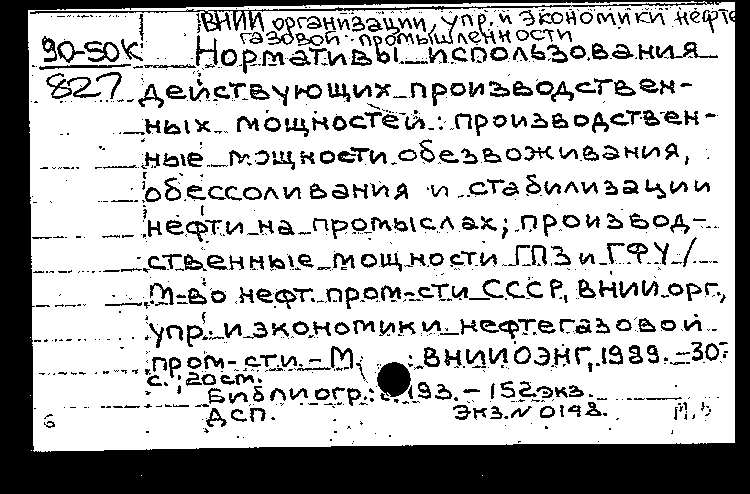 ВНИИ организации, упр. и экономики нефте
газовой промышленности
90-50К
827
Нормативы использования
действующих производствен-
ных мощностей: производствен-
ные мощности обезвоживания,
обессоливания и стабилизации
нефти на промыслах; производ-
ственные мощности ГПЗ и ГФУ/
М-во нефт. пром-сти СССР, ВНИИ орг.,
упр. и экономики нефтегазовой
пром-сти. - М. : ВНИИОЭНГ, 1989. - 30
с.; 20 см.
Библиогр.: с. 193. - 152 экз.
ДСП. Экз. N 0148.
6